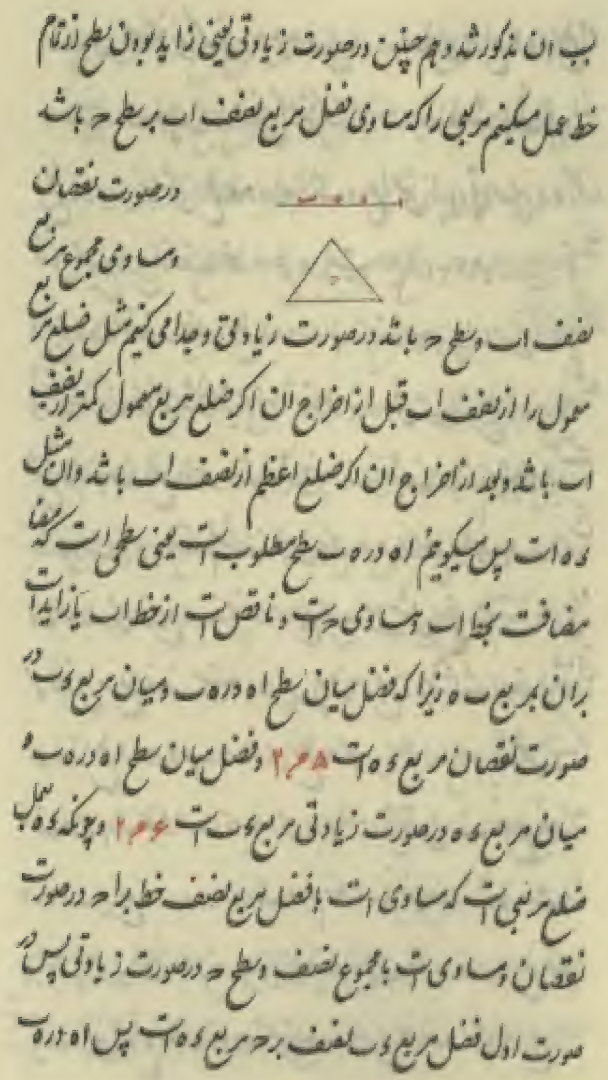 ان مذکور شد و هم چنین در صورت زیادتی یعنی زاید بودن سطح از تمام
خط عمل میکنیم مربعی را که مساوی فضل مربع نصف اب بر سطح ح باشد
در صورت نقصان
و مساوی مجموع مربع
نصف اب و سطح ح باشد در صورت زیادتی و جدا می کنیم مثل ضلع مربع
معمول را از نصف اب قبل از اخراج ان اکر ضلع مربع معمول کمتر از نصف
اب باشد و بعد از اخراج ان اکر ضلع اعظم از نصف اب باشد و ان مثل
ء ه است پس میکوییم ا ه در ه ب سطح مطلوب است یعنی سطحی است که
مضافت بخط اب و مساوی ح است و ناقص است از خط اب یا زاید است
بران بمربع ب ه زیرا که فضل میان سطح ا ه در ه ب و میان مربع ء ب در
صورت نقصان مربع ء ه است ۲م۸ و فضل میان سطح ا ه در ه ب و
میان مربع ء ه در صورت زیادتی مربع ء ب است ۲م۶ و چونکه ء ه
ضلع مربعی است که مساوی است با فضل مربع نصف خط بر ح در صورت
نقصان و مساوی است با مجموع نصف و سطح ح در صورت زیادتی پس در
صورت اول فضل مربع ء ب نصف بر ح مربع ء ه است پس ا ه در ه ب